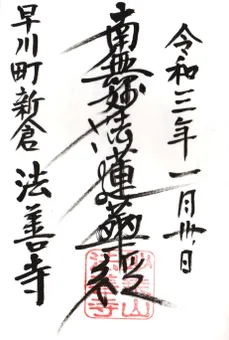 令和三年一月卅日
南無妙法蓮華経
早川町新倉 法善寺